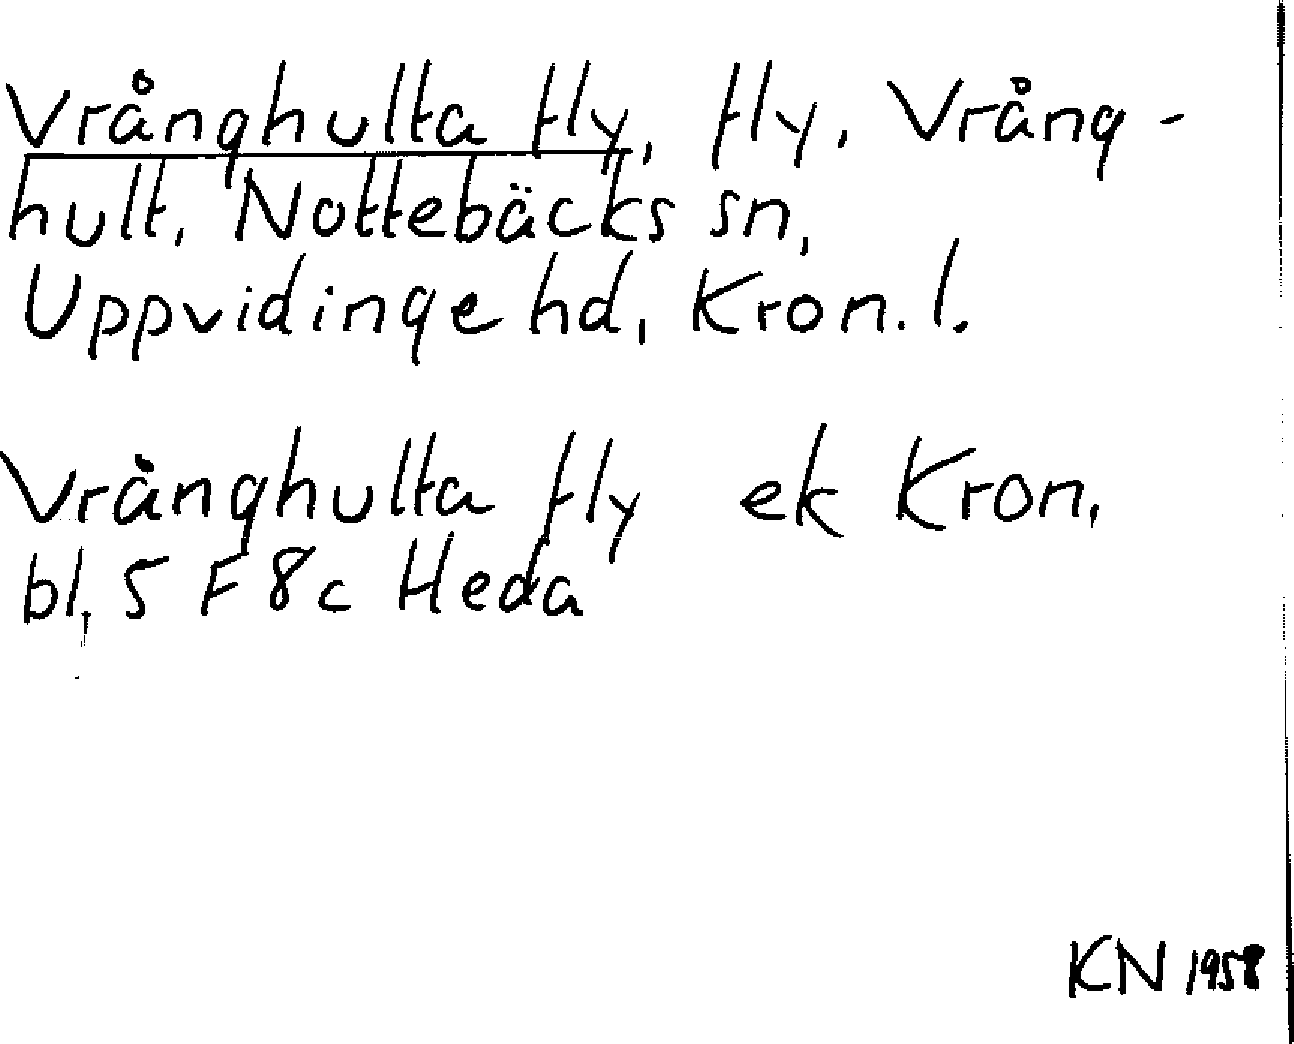 Vrånghulta fly, fly, Vrång-
hult, Nottebäcks sn,
Uppvidinge hd, Kron. l.
Vrånghulta fly ek Kron,
bl, 5 F 8c Heda
KN 1958